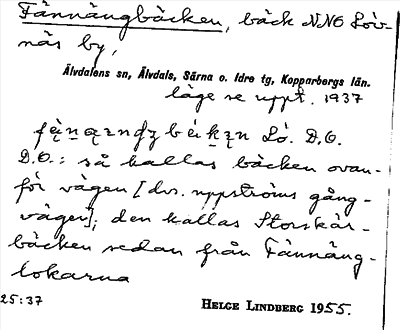 Fännängbäcken, bäck NNO Löv-
näs by,
Älvdalens sn, Älvdals, Särna o. Idre tg, Kopparbergs län.
läge se uppt. 1937
Lö. D.O.
D.O.: så kallas bäcken ovan-
för vägen [dvs. uppströms gång-
vägen]; den kallas Storskär-
bäcken nedan från Fännäng-
lokarna
25:37
HELGE LINDBERG 1955.